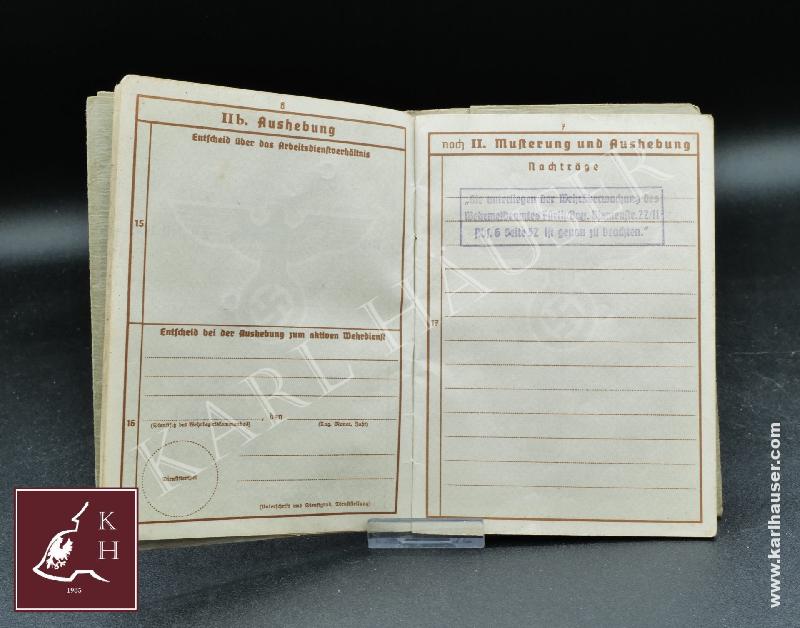 6
IIb. Aushebung
Entscheid über das Arbeitsdienstverhältnis
15
Entscheid bei der Aushebung zum aktiven Wehrdienst
16
, den
(Dienstsitz des Wehrbezirkskommandos)
(Tag, Monat, Jahr)
Dienststempel
(Unterschrift und Dienstgrad, Dienststellung)
7
noch II. Musterung und Aushebung
Nachträge
„Sie unterliegen der Wehrüberwachung des
Wehrmeldeamtes 22/II
Abs. 6 Seite 52 ist genau zu beachten."
17
KARL HAUSER
K
H
1985
www.karlhauser.com